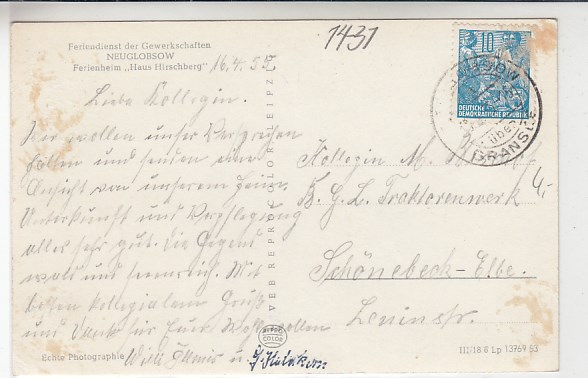 1431
Feriendienst der Gewerkschaften
NEUGLOBSOW
Ferienheim „Haus Hirschberg"
16.4.55
10
DEUTSCHE
DEMOKRATISCHE REPUBLIK
über
GRANSEE
Liebe Kollegin.
Wir wollen unser Versprechen
halten und senden eine
Ansicht von unserem Heim.
Unterkunft und Verpflegung
alles sehr gut. Die Gegend
wald und seenreich. Mit
besten kollegialem Gruß
und Dank für Euer Wohlwollen
Willi u.
Kollegin M.
B. G. L. Traktorenwerk
Schönebeck-Elbe.
Leninstr.
4,-
VEB REPROCOLOR LEIPZIG
REPRO
COLOR
Echte Photographie
III/18/6 Lp 13769 53